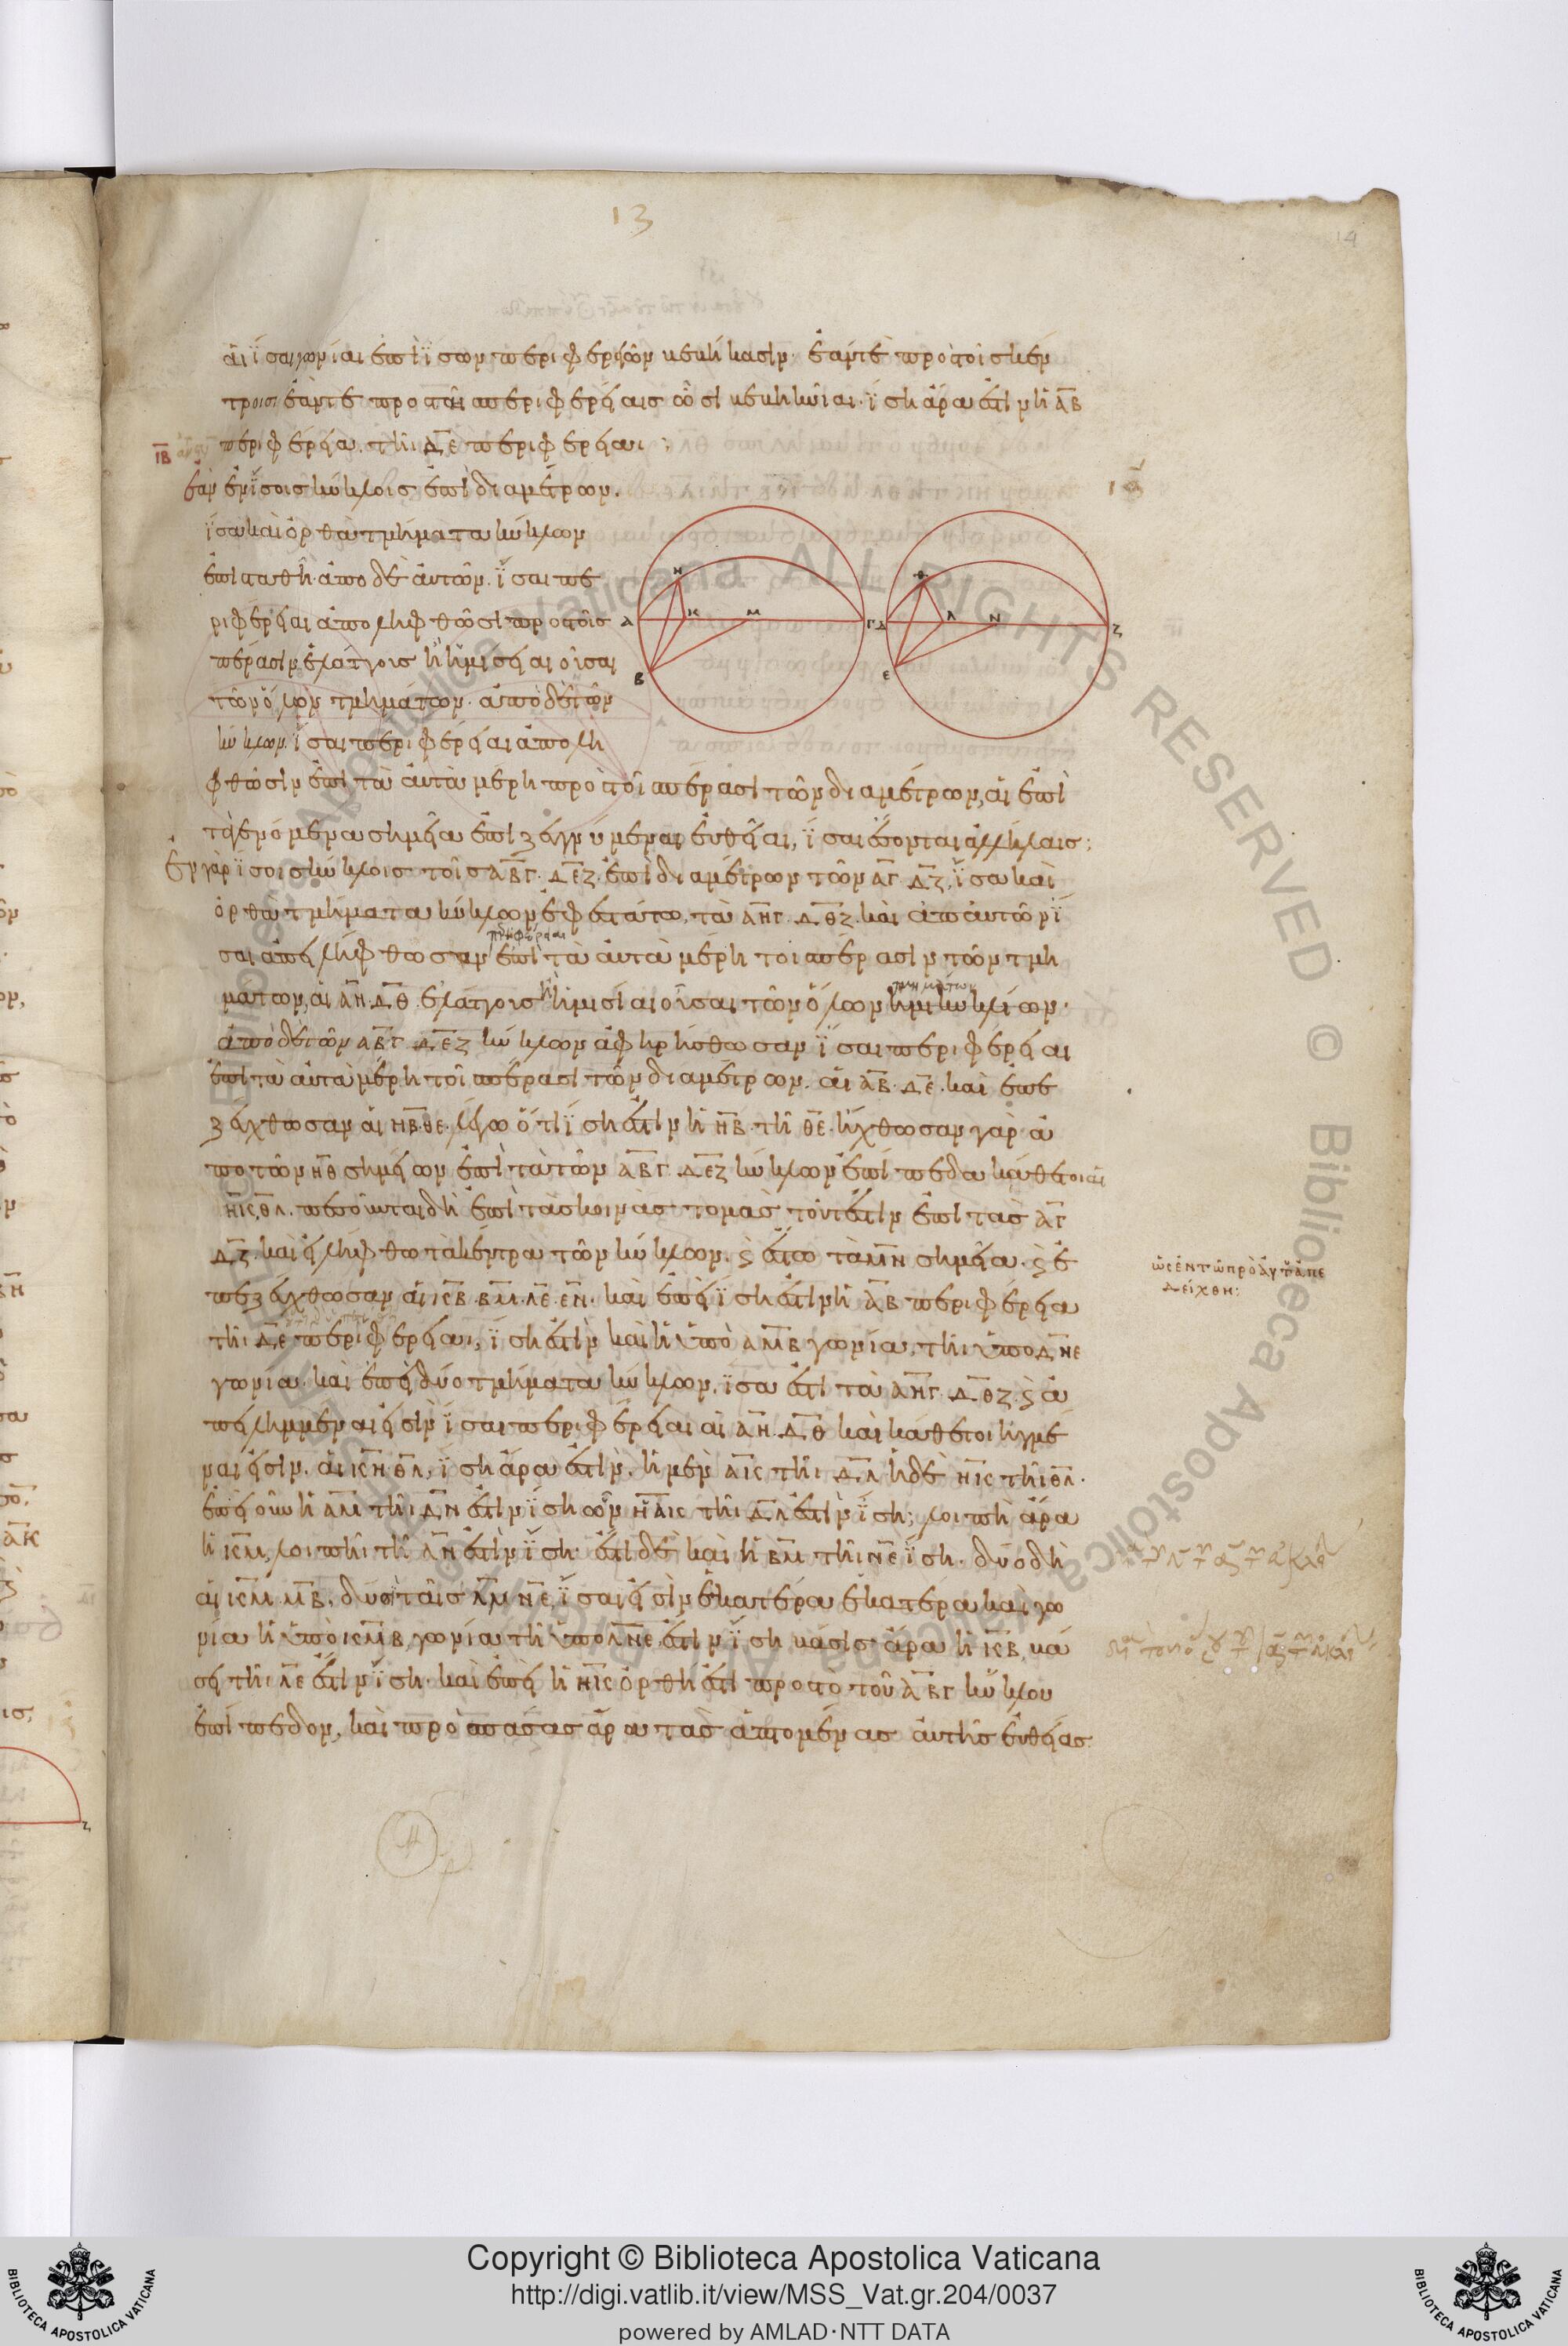 13
14
αἱ ἴσαι γωνίαι ἐπὶ ἴσων περιφερειῶν βεβήκασιν· ἐάν τε πρὸς τοῖς κέν
τροις ἐάν τε πρὸς ταῖς περιφερείαις ὦσι βεβηκυῖαι· ἴση ἄρα ἐστὶν ἡ ΑΒ
περιφέρεια τῆι ΔΕ περιφερείαι:
ΙΒ
ἐὰν ἐν ἴσοις κύκλοις ἐπὶ διαμέτρων
ἴσα καὶ ὀρθὰ τμήματα κύκλων
ἐπισταθῆ· ἀπὸ δὲ αὐτῶν ἴσαι πε
ριφέρειαι ἀποληφθῶσι πρὸς τοῖς
πέρασιν ἐλάττοις ἢ ἡμίσειαι οὖσαι
τῶν ὅλων τμημάτων· ἀπὸ δὲ τῶν
κύκλων ἴσαι περιφέρειαι ἀπολη
Η Α Κ Μ Γ Β
Θ Δ Λ Ν Ζ Ε
φθῶσιν ἐπὶ τὰ αὐτὰ μέρη πρὸς τοῖς πέρασι τῶν διαμέτρων, αἱ ἐπὶ
τὰ γενόμενα σημεῖα ἐπιζευγνύμεναι εὐθεῖαι, ἴσαι ἔσονται ἀλλήλαις:
ἐν γὰρ ἴσοις κύκλοις τοῖς ΑΒΓ· ΔΕΖ· ἐπὶ διαμέτρων τῶν ΑΓ· ΔΖ, ἴσα καὶ
ὀρθὰ τμήματα κύκλων ἐφεστάτω, τὰ ΑΗΓ· ΔΘΖ· καὶ ἀπ' αὐτῶν ἴ
περιφέρειαι
σαι ἀπειλήφθωσαν ἐπὶ τὰ αὐτὰ μέρη τοῖς πέρασιν τῶν τμη
τμημάτων
μάτων, αἱ ΑΗ· ΔΘ· ἐλάττοις ἢ ἡμίσιαι οὖσαι τῶν ὅλων ἡμικυκλίων·
ἀπὸ δὲ τῶν ΑΒΓ· ΔΕΖ κύκλων ἀφηρήσθωσαν ἴσαι περιφέρειαι
ἐπὶ τὰ αὐτὰ μέρη τοῖς πέρασι τῶν διαμέτρων· αἱ ΑΒ· ΔΕ· καὶ ἐπε
ζεύχθωσαν αἱ ΗΒ· ΘΕ· λέγω ὅτι ἴση ἐστὶν ἡ ΗΒ· τῆ ΘΕ· ἤχθωσαν γὰρ ἀ
πὸ τῶν ΗΘ σημείων ἐπὶ τὰ τῶν ΑΒΓ· ΔΕΖ κύκλων ἐπίπεδα κάθετοι αἱ
ΗΚ, ΘΛ· πεσοῦνται δὴ ἐπὶ τὰς κοινὰς τομὰς τουτέστιν ἐπὶ τὰς ΑΓ
ΔΖ· καὶ εἰλήφθω τὰ κέντρα τῶν κύκλων· ϛ ἔστω τὰ ΜΝ σημεῖα· ϛ ἐ
πεζεύχθωσαν αἱ ΚΒ· ΒΜ· ΛΕ· ΕΝ· καὶ ἐπεὶ ἴση ἐστὶν ἡ ΑΒ περιφέρεια
τῆι ΔΕ περιφερείαι, ἴση ἐστὶν καὶ ἡ ὑπὸ ΑΜΒ γωνία, τῆι ὑπὸ ΔΝΕ
γωνία· καὶ ἐπεὶ δύο τμήματα κύκλων, ἴσα ἐστὶ τὰ ΑΗΓ· ΔΘΖ· ϛ ἀ
πειλημμέναι εἰσὶν ἴσαι περιφέρειαι αἱ ΑΗ· ΔΘ καὶ κάθετοι ἠγμέ
ναι εἰσὶν· αἱ ΚΗ· ΘΛ, ἴση ἄρα ἐστὶν· ἡ μὲν ΑΚ τῆι ΔΛ ἡ δὲ ΗΚ τῆι ΘΛ·
ἐπεὶ οὖν ἡ ΑΜ τῆι ΔΝ ἐστὶν ἴση ὧν ἡ ΑΚ τῆι ΔΛ ἐστὶν ἴση; λοιπὴ ἄρα
ἡ ΚΜ, λοιπῆι τῆ ΛΝ ἐστὶν ἴση· ἔστι δὲ καὶ ἡ ΒΜ τῆι ΝΕ ἴση· δύο δὴ
αἱ ΚΜ ΜΒ, δυσὶ ταῖς ΛΝ ΝΕ, ἴσαι εἰσὶν ἑκατέρα ἑκατέρα καὶ γω
νία ἡ ὑπὸ ΚΜΒ, γωνία τῆ ὑπὸ ΛΝΕ, ἐστὶν ἴση βάσις ἄρα ἡ ΚΒ, βά
σει τῆι ΛΕ ἐστὶν ἴση· καὶ ἐπεὶ ἡ ΗΚ ὀρθή ἐστι πρὸς τὸ τοῦ ΑΒΓ κύκλου
ἐπίπεδον, καὶ πρὸς πάσας ἄρα τὰς ἁπτομένας αὐτῆς εὐθείας
ὡς ἐν τῶ πρὸ αὐτοῦ ἀπε
δείχθη:
Copyright © Biblioteca Apostolica Vaticana
http://digi.vatlib.it/view/MSS_Vat.gr.204/0037
powered by AMLAD·NTT DATA
BIBLIOTECA APOSTOLICA VATICANA
BIBLIOTECA APOSTOLICA VATICANA